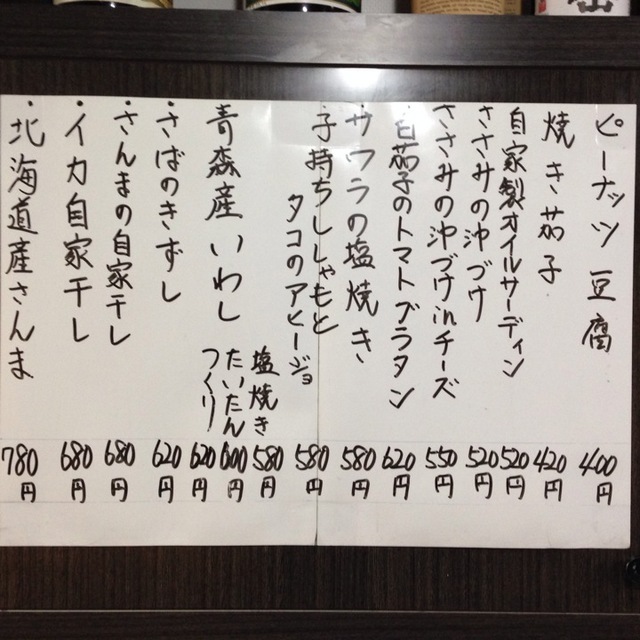 ピーナッツ豆腐 400円
焼き茄子 420円
自家製オイルサーディン 520円
ささみの沖づけ 520円
ささみの沖づけinチーズ 550円
白茄子のトマトブラタン 620円
・サワラの塩焼き 580円
・子持ちししゃもと
タコのアヒージョ 580円
青森産いわし
塩焼き 580円
たいたん 600円
つくり 620円
・さばのきずし 620円
・さんまの自家干し 680円
・イカ自家干し 680円
・北海道産さんま 780円